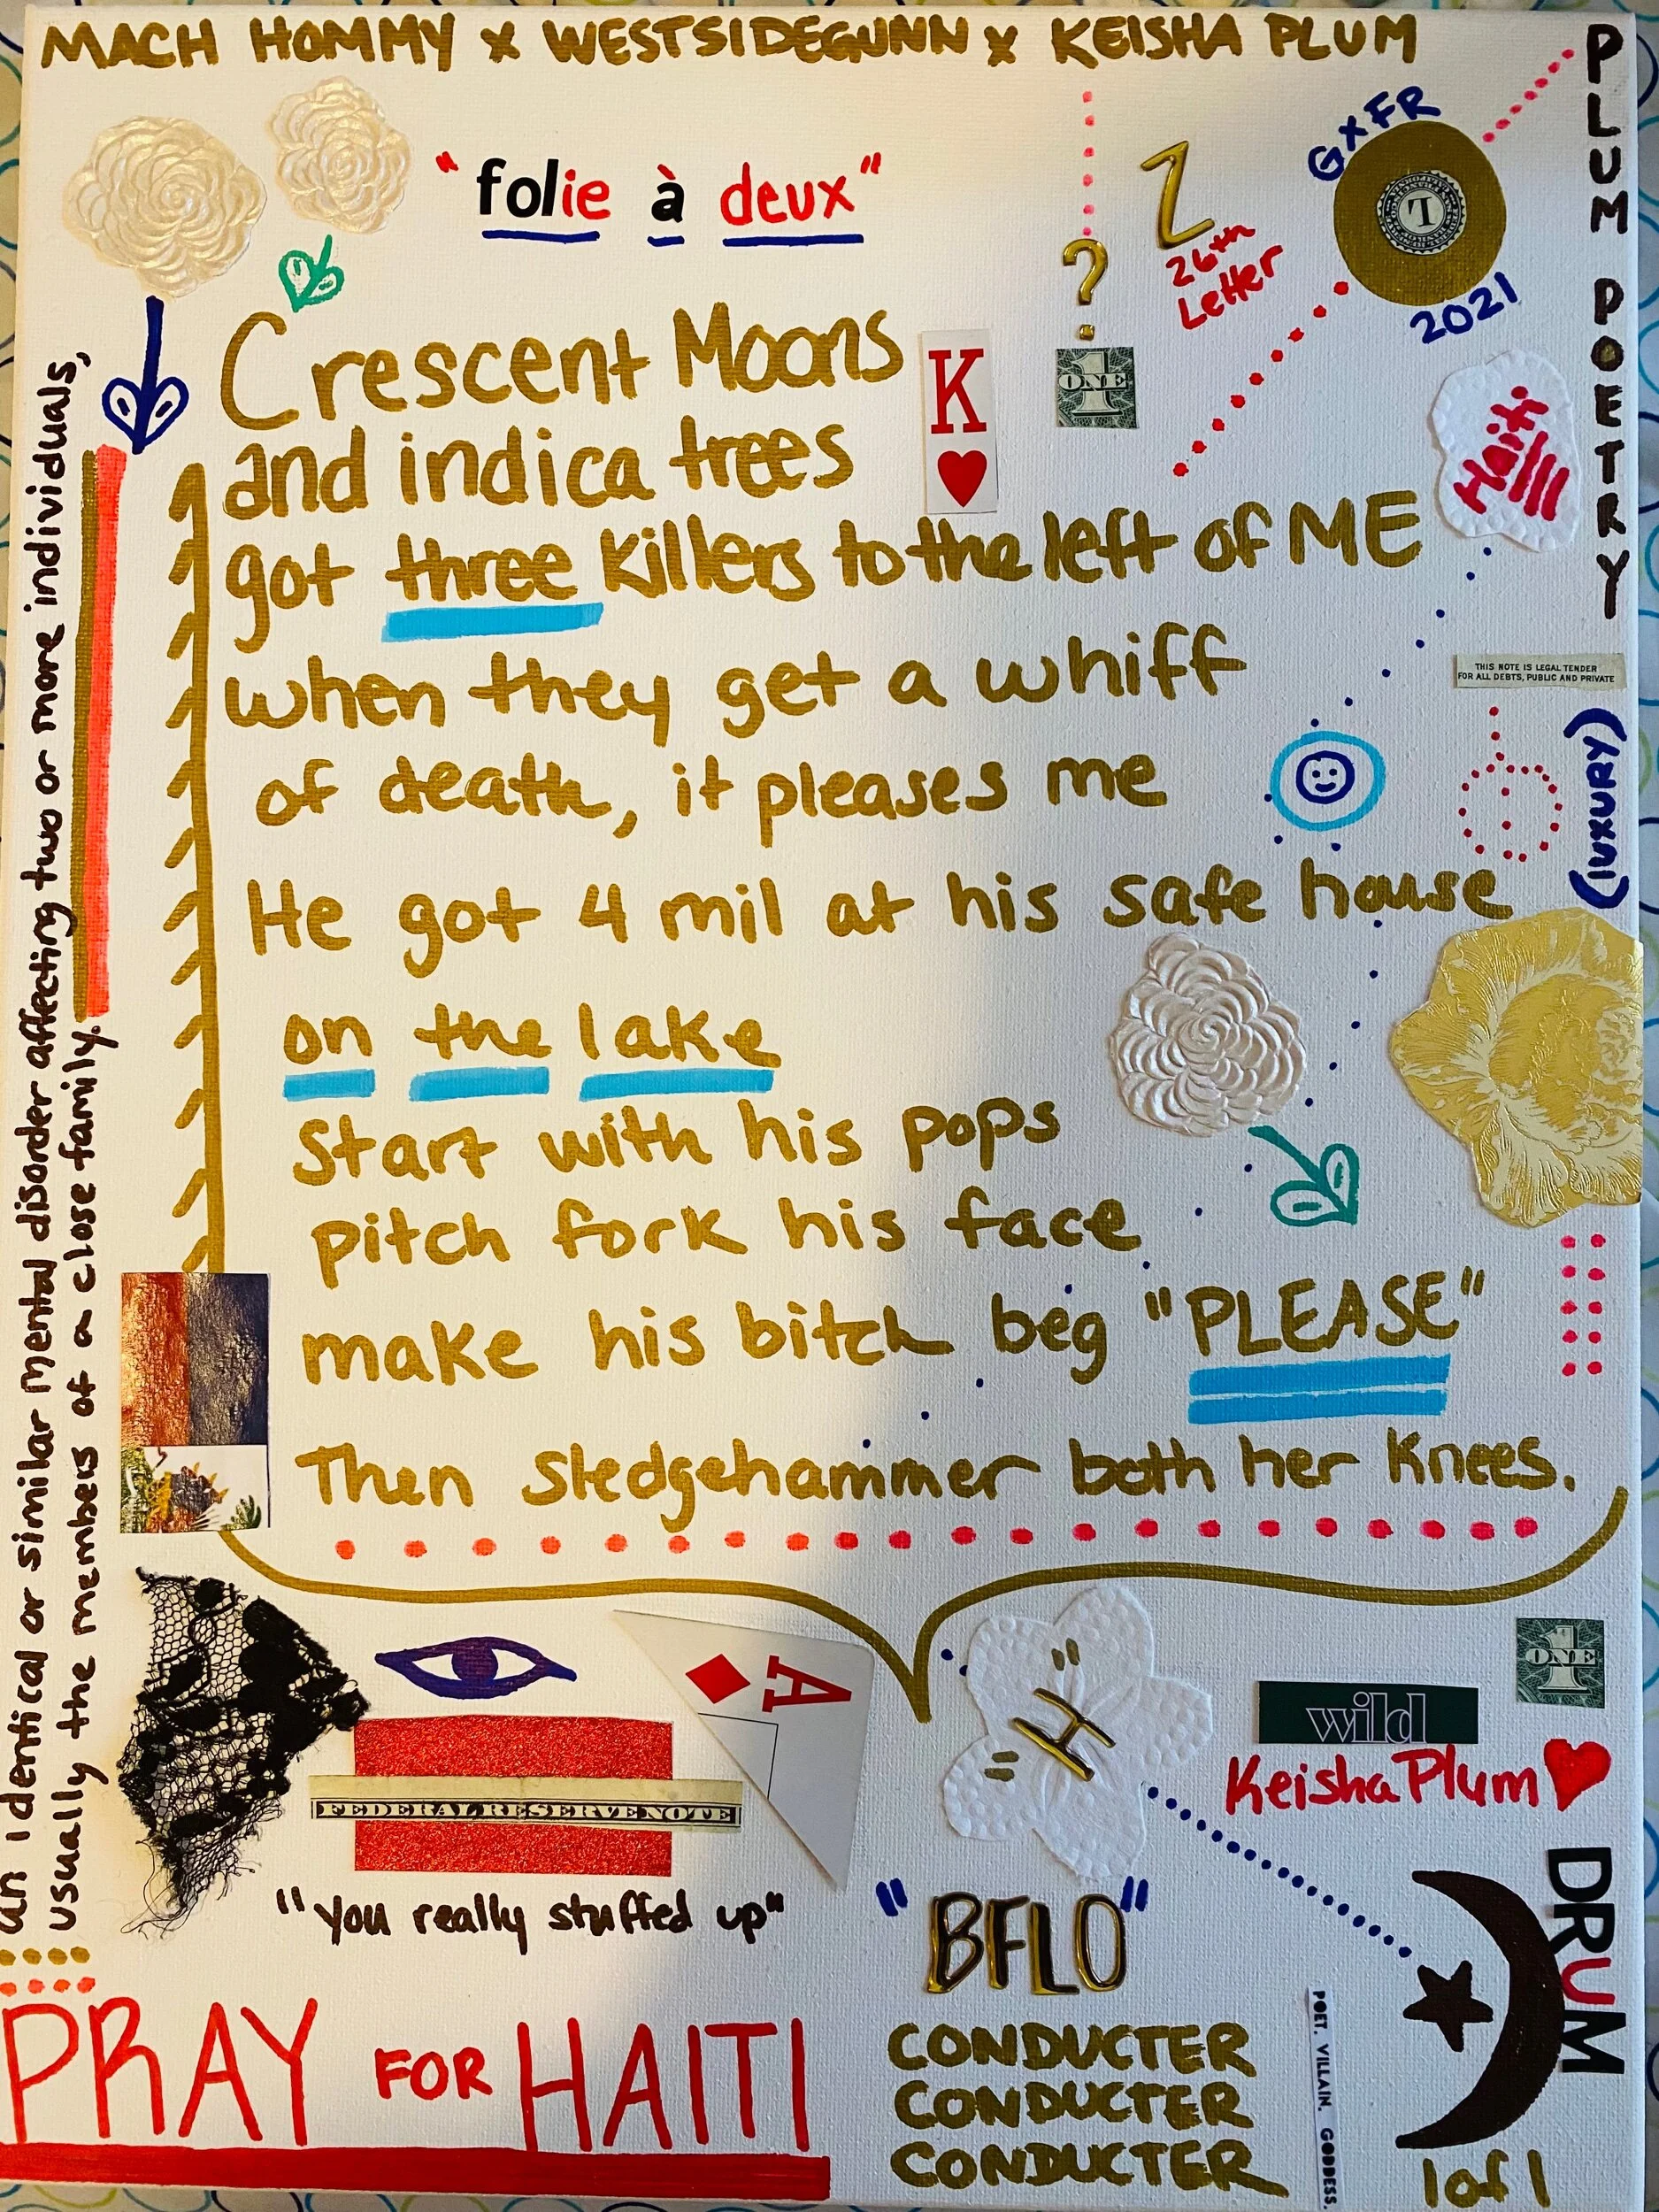 MACH HOMMY x WESTSIDEGUNN x KEISHA PLUM
PLUM POETRY
"folie à deux"
?
Z
26th
Letter
GxFR
L
2021
ONE
1
K
Haiti
Crescent Moons
and indica trees
got three Killers to the left of ME
when they get a whiff
of death, it pleases me
He got 4 mil at his safe house
on the lake
Start with his pops
pitch fork his face
make his bitch beg "PLEASE"
Then Sledgehammer both her Knees.
THIS NOTE IS LEGAL TENDER
FOR ALL DEBTS, PUBLIC AND PRIVATE
(luxury)
an identical or similar mental disorder affecting two or more individuals,
usually the members of a close family.
A
FEDERAL RESERVE NOTE
"you really stuffed up"
"H"
ONE
1
wild
Keisha Plum
"BFLO"
DRUM
PRAY FOR HAITI
CONDUCTER
CONDUCTER
CONDUCTER
POET. VILLAIN. GODDESS.
1 of 1